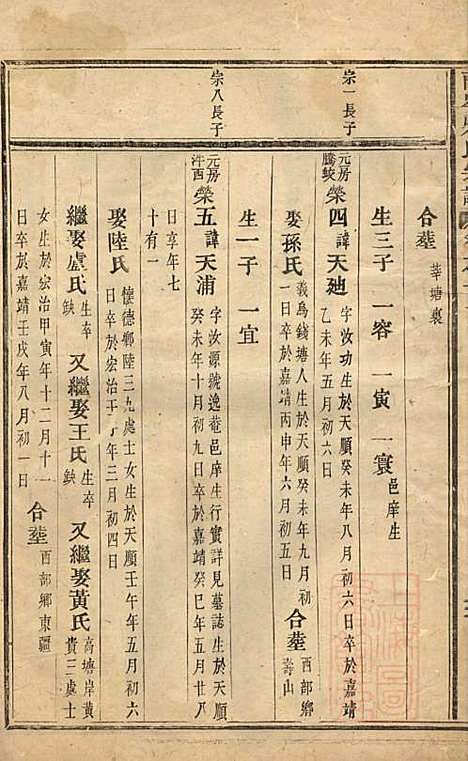 合塟 莘塘裏
生三子 一容 一寅 一寰 邑庠生
宗一長子
元房騰蛟 榮四 諱 天廸 字汝功生於天順癸未年八月初六日卒於嘉靖
乙未年五月初六日
娶孫氏 義烏錢塘人生於天順癸未年九月初
一日卒於嘉靖丙申年六月初五日 合塟 西部鄉壽山
生一子 一宜
宗八長子
元房泮西 榮五 諱 天浦 字汝源號逸菴邑庠生行實詳見墓誌生於天順
癸未年十月初九日卒於嘉靖癸巳年五月廿八
日享年七
十有一
娶陸氏 懷德鄉陸三九處士女生於天順壬午年五月初六
日卒於宏治 年三月初四日
繼娶盧氏 生卒缺 又繼娶王氏 生卒缺 又繼娶黃氏 高塘岸黃貴三處士
女生於宏治甲寅年十二月十一
日卒於嘉靖壬戌年八月初一日 合塟 西部鄉東疆